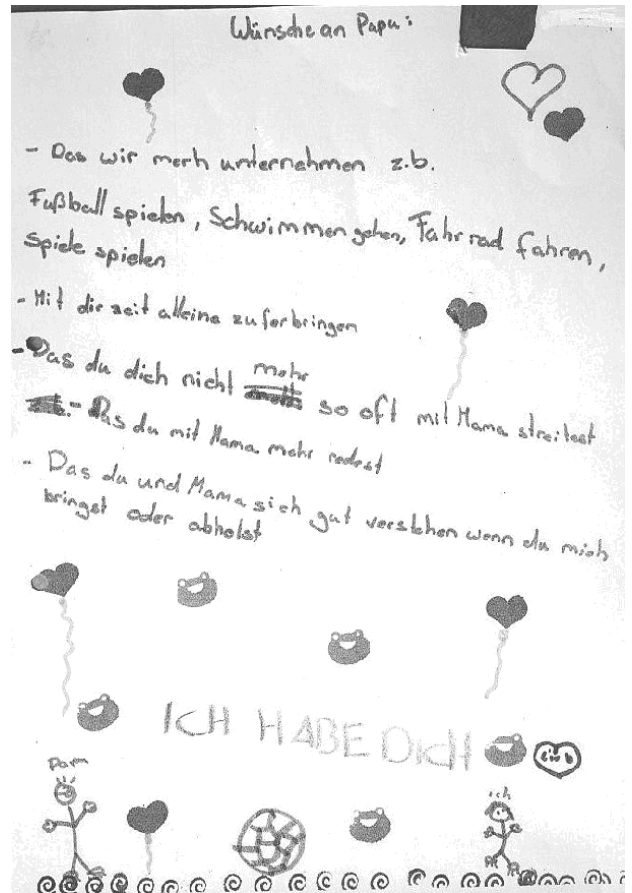 Wünsche an Papa:
- Das wir merh unternehmen z.b.
Fußball spielen, Schwimmen gehen, Fahrrad fahren,
Spiele spielen
- Mit dir zeit alleine zuferbringen
- Das du dich nicht mehr so oft mit Mama streitest
- Das du mit Mama mehr redest
- Das du und Mama sich gut verstehen wenn du mich
bringst oder abholst
ICH HABE DICH lieb
ich